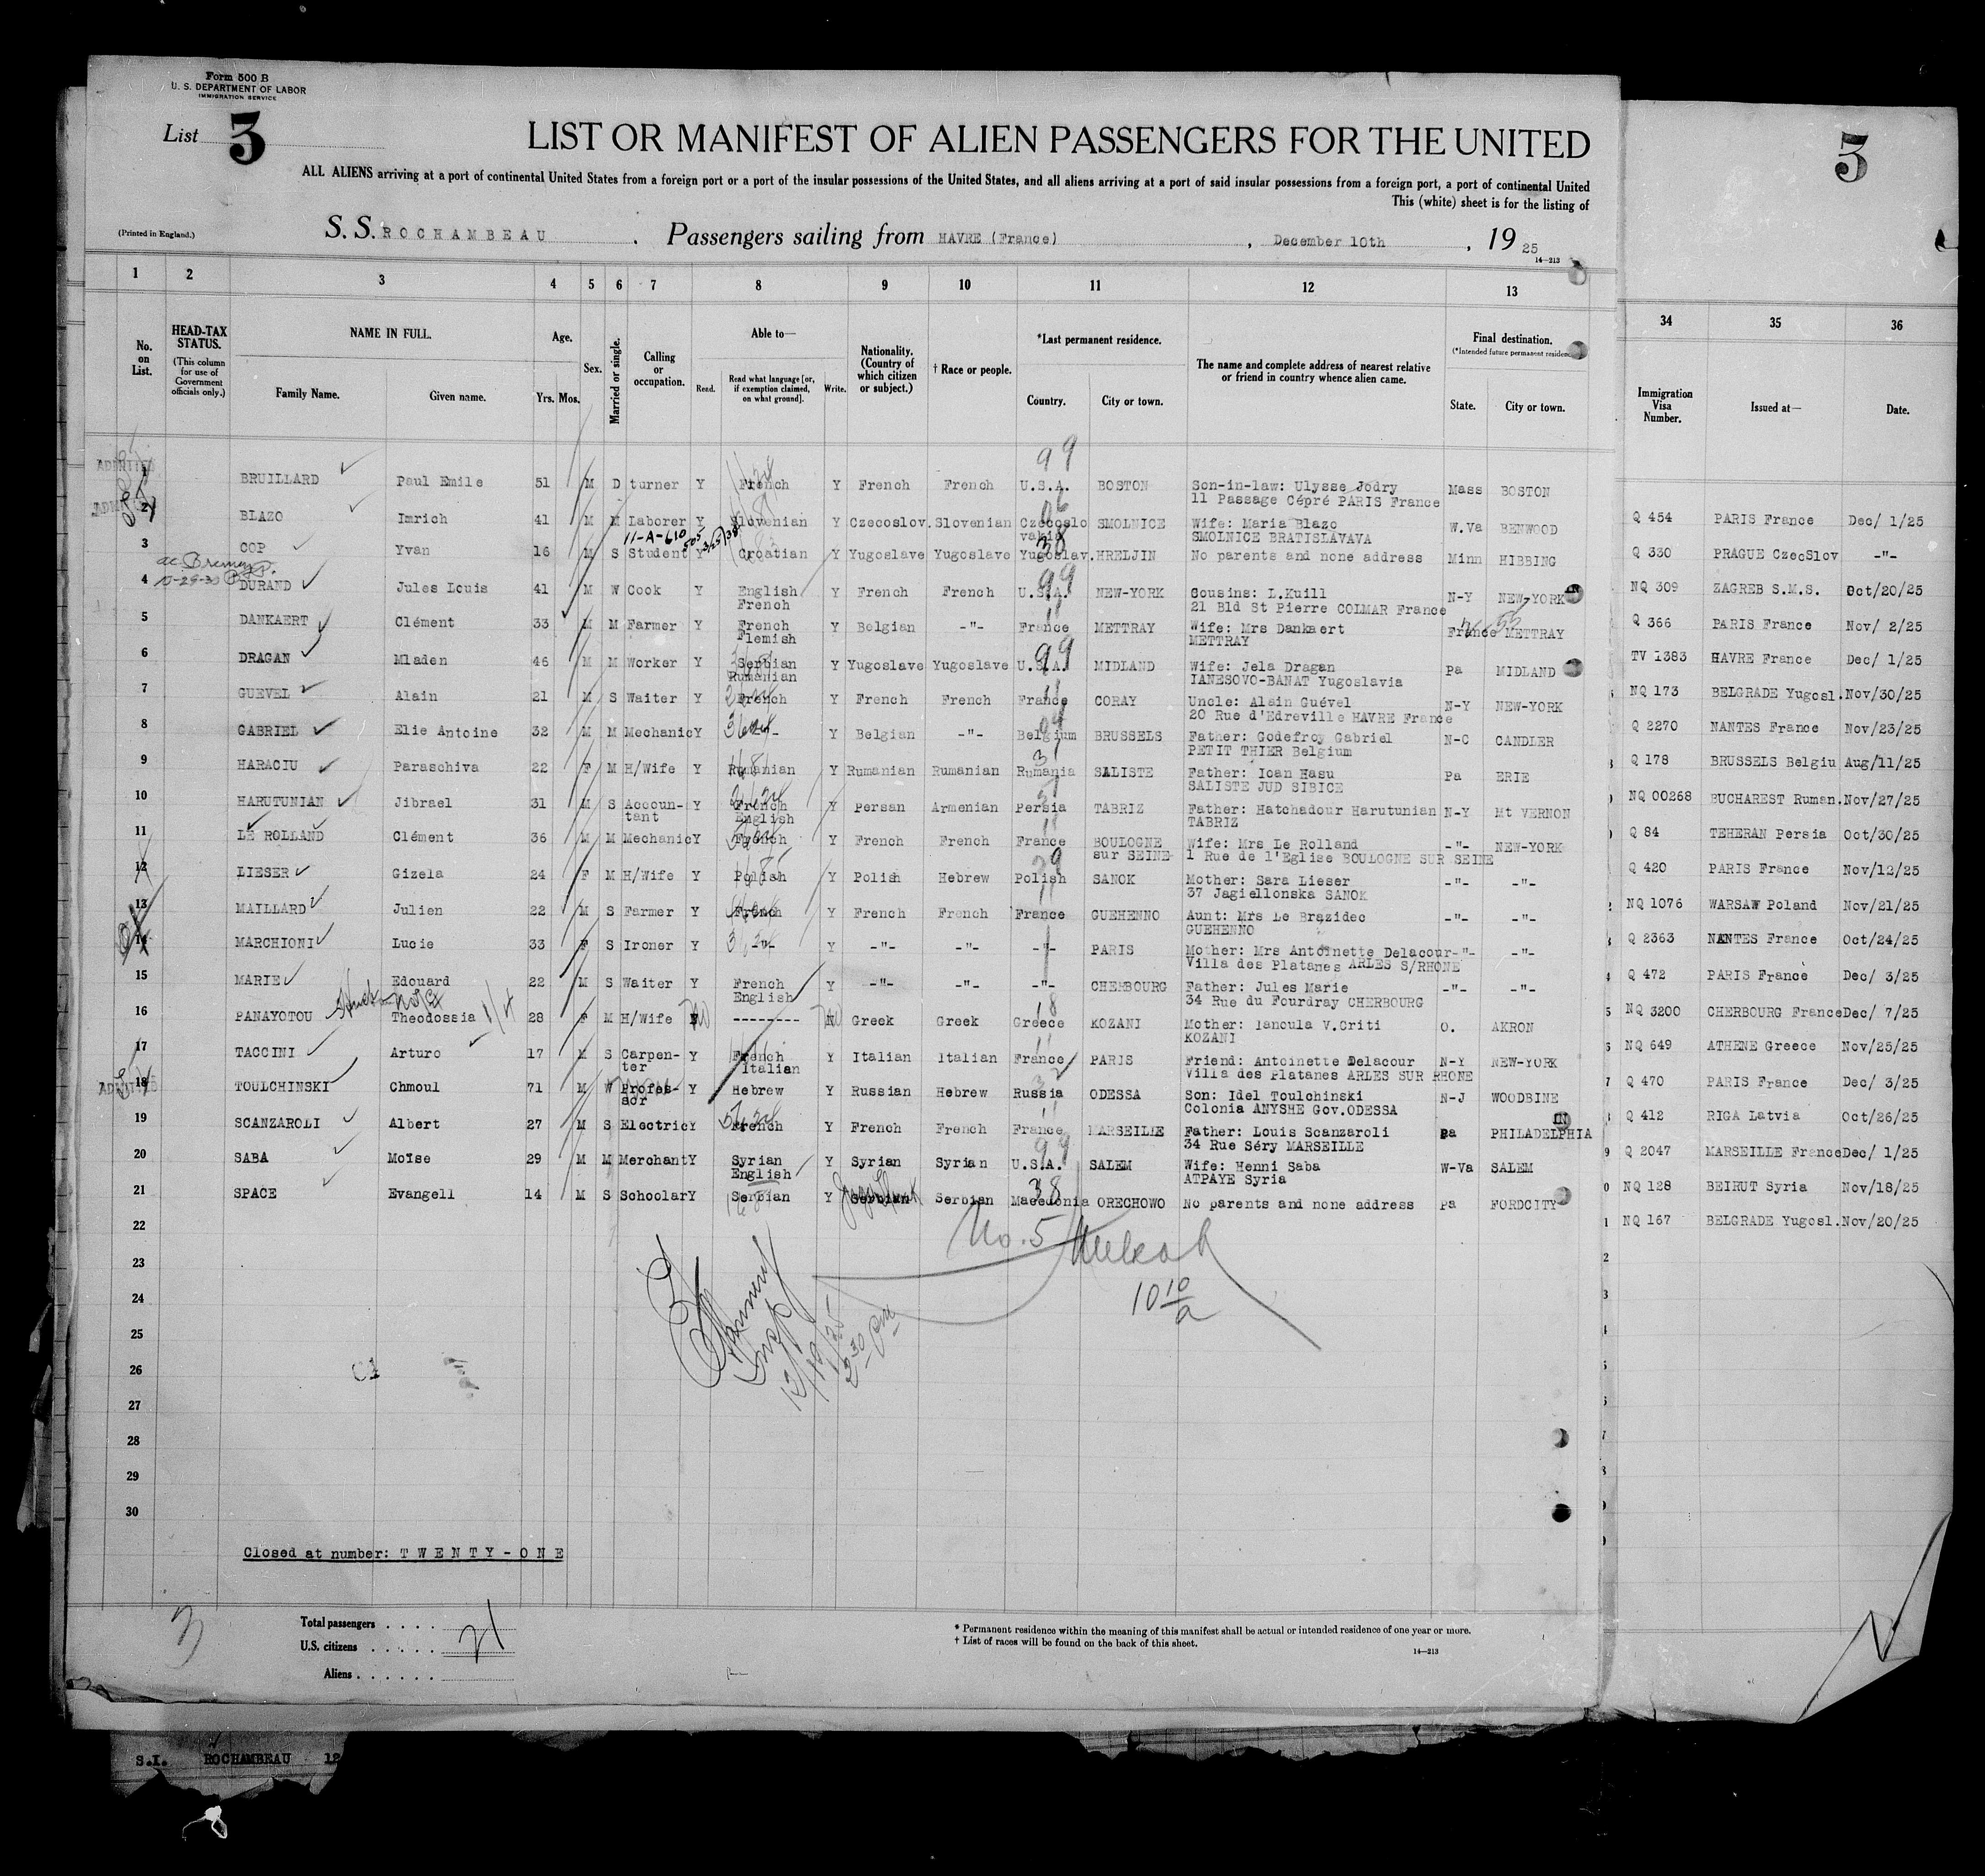 Form 500 B
U. S. DEPARTMENT OF LABOR
IMMIGRATION SERVICE
List 3
3
LIST OR MANIFEST OF ALIEN PASSENGERS FOR THE UNITED
ALL ALIENS arriving at a port of continental United States from a foreign port or a port of the insular possessions of the United States, and all aliens arriving at a port of said insular possessions from a foreign port, a port of continental United
This (white) sheet is for the listing of
(Printed in England.) S. S. ROCHAMBEAU . Passengers sailing from HAVRE (France) , December 10th , 19 25
14—213
1 2 3 4 5 6 7 8 9 10 11 12 13 34 35 36
No. on List. HEAD-TAX STATUS. (This column for use of Government officials only.) NAME IN FULL. Family Name. Given name. Age. Yrs. Mos. Sex. Married or single. Calling or occupation. Able to— Read. Read what language [or, if exemption claimed, on what ground]. Write. Nationality. (Country of which citizen or subject.) † Race or people. *Last permanent residence. Country. City or town. The name and complete address of nearest relative or friend in country whence alien came. Final destination. (*Intended future permanent residence) State. City or town. Immigration Visa Number. Issued at— Date.
ADMITTED
99
1 BRUILLARD Paul Emile 51 M D turner Y French Y French French U.S.A. BOSTON Son-in-law: Ulysse Jodry Mass BOSTON
11 Passage Cépré PARIS France
2 BLAZO Imrich 41 M M Laborer Y Slovenian Y Czecoslov. Slovenian Czecoslo SMOLNICE Wife: Maria Blazo W.Va BENWOOD Q 454 PARIS France Dec/ 1/25
vakia SMOLNICE BRATISLAVAVA
11-A-610
3 COP Yvan 16 M S Student Y Croatian Y Yugoslave Yugoslave Yugoslav. HRELJIN No parents and none address Minn HIBBING Q 330 PRAGUE CzecSlov -"-
10-29-30
4 DURAND Jules Louis 41 M W Cook Y English Y French French U.S.A. NEW-YORK Cousins: L.Kuill N-Y NEW-YORK NQ 309 ZAGREB S.M.S. Oct/20/25
French 21 Bld St Pierre COLMAR France
5 DANKAERT Clément 33 M M Farmer Y French Y Belgian -"- France METTRAY Wife: Mrs Dankaert France METTRAY Q 366 PARIS France Nov/ 2/25
Flemish METTRAY
6 DRAGAN Mladen 46 M M Worker Y Serbian Y Yugoslave Yugoslave U.S.A. MIDLAND Wife: Jela Dragan Pa MIDLAND TV 1383 HAVRE France Dec/ 1/25
Rumanian IANESOVO-BANAT Yugoslavia
7 GUEVEL Alain 21 M S Waiter Y French Y French French France CORAY Uncle: Alain Guével N-Y NEW-YORK NQ 173 BELGRADE Yugosl. Nov/30/25
20 Rue d'Edreville HAVRE France
8 GABRIEL Elie Antoine 32 M M Mechanic Y -"- Y Belgian -"- Belgium BRUSSELS Father: Godefroy Gabriel N-C CANDLER Q 2270 NANTES France Nov/23/25
PETIT THIER Belgium
9 HARACIU Paraschiva 22 F M H/Wife Y Rumanian Y Rumanian Rumanian Rumania SALISTE Father: Ioan Hasu Pa ERIE Q 178 BRUSSELS Belgiu Aug/11/25
SALISTE JUD SIBICE
10 HARUTUNIAN Jibrael 31 M S Accoun- Y French Y Persan Armenian Persia TABRIZ Father: Hatchadour Harutunian N-Y Mt VERNON NQ 00268 BUCHAREST Ruman. Nov/27/25
tant English TABRIZ
11 LE ROLLAND Clément 36 M M Mechanic Y French Y French French France BOULOGNE Wife: Mrs Le Rolland -"- NEW-YORK Q 84 TEHERAN Persia Oct/30/25
sur SEINE 1 Rue de l'Eglise BOULOGNE SUR SEINE
12 LIESER Gizela 24 F M H/Wife Y Polish Y Polish Hebrew Polish SANOK Mother: Sara Lieser -"- -"- Q 420 PARIS France Nov/12/25
37 Jagiellonska SANOK
13 MAILLARD Julien 22 M S Farmer Y French Y French French France GUEHENNO Aunt: Mrs Le Brazidec -"- -"- NQ 1076 WARSAW Poland Nov/21/25
GUEHENNO
14 MARCHIONI Lucie 33 F S Ironer Y -"- Y -"- -"- -"- PARIS Mother: Mrs Antoinette Delacour -"- -"- Q 2363 NANTES France Oct/24/25
Villa des Platanes ARLES S/RHONE
15 MARIE Edouard 22 M S Waiter Y French Y -"- -"- -"- CHERBOURG Father: Jules Marie -"- -"- Q 472 PARIS France Dec/ 3/25
English 34 Rue du Fourdray CHERBOURG
16 PANAYOTOU Theodossia 28 F M H/Wife -------- Greek Greek Greece KOZANI Mother: Iancula V.Criti O. AKRON NQ 3200 CHERBOURG France Dec/ 7/25
KOZANI
17 TACCINI Arturo 17 M S Carpen- Y French Y Italian Italian France PARIS Friend: Antoinette Delacour N-Y NEW-YORK NQ 649 ATHENE Greece Nov/25/25
ter Italian Villa des Platanes ARLES SUR RHONE
18 TOULCHINSKI Chmoul 71 M W Profes- Y Hebrew Y Russian Hebrew Russia ODESSA Son: Idel Toulchinski N-J WOODBINE Q 470 PARIS France Dec/ 3/25
sor Colonia ANYSHE Gov.ODESSA
19 SCANZAROLI Albert 27 M S Electric Y French Y French French France MARSEILLE Father: Louis Scanzaroli Pa PHILADELPHIA Q 412 RIGA Latvia Oct/26/25
34 Rue Séry MARSEILLE
20 SABA Moïse 29 M M Merchant Y Syrian Y Syrian Syrian U.S.A. SALEM Wife: Henni Saba W-Va SALEM Q 2047 MARSEILLE France Dec/ 1/25
English ATPAYE Syria
21 SPACE Evangell 14 M S Schoolar Y Serbian Y Serbian Serbian Macedonia ORECHOWO No parents and none address Pa FORDCITY NQ 128 BEIRUT Syria Nov/18/25
22 NQ 167 BELGRADE Yugosl. Nov/20/25
No. 5
23
24
25
26
27
28
29
30
Closed at number: TWENTY-ONE
3
Total passengers . . . .
U.S. citizens . . . . . 21
Aliens . . . . . .
* Permanent residence within the meaning of this manifest shall be actual or intended residence of one year or more.
† List of races will be found on the back of this sheet.
14—213
S.I. ROCHAMBEAU 12